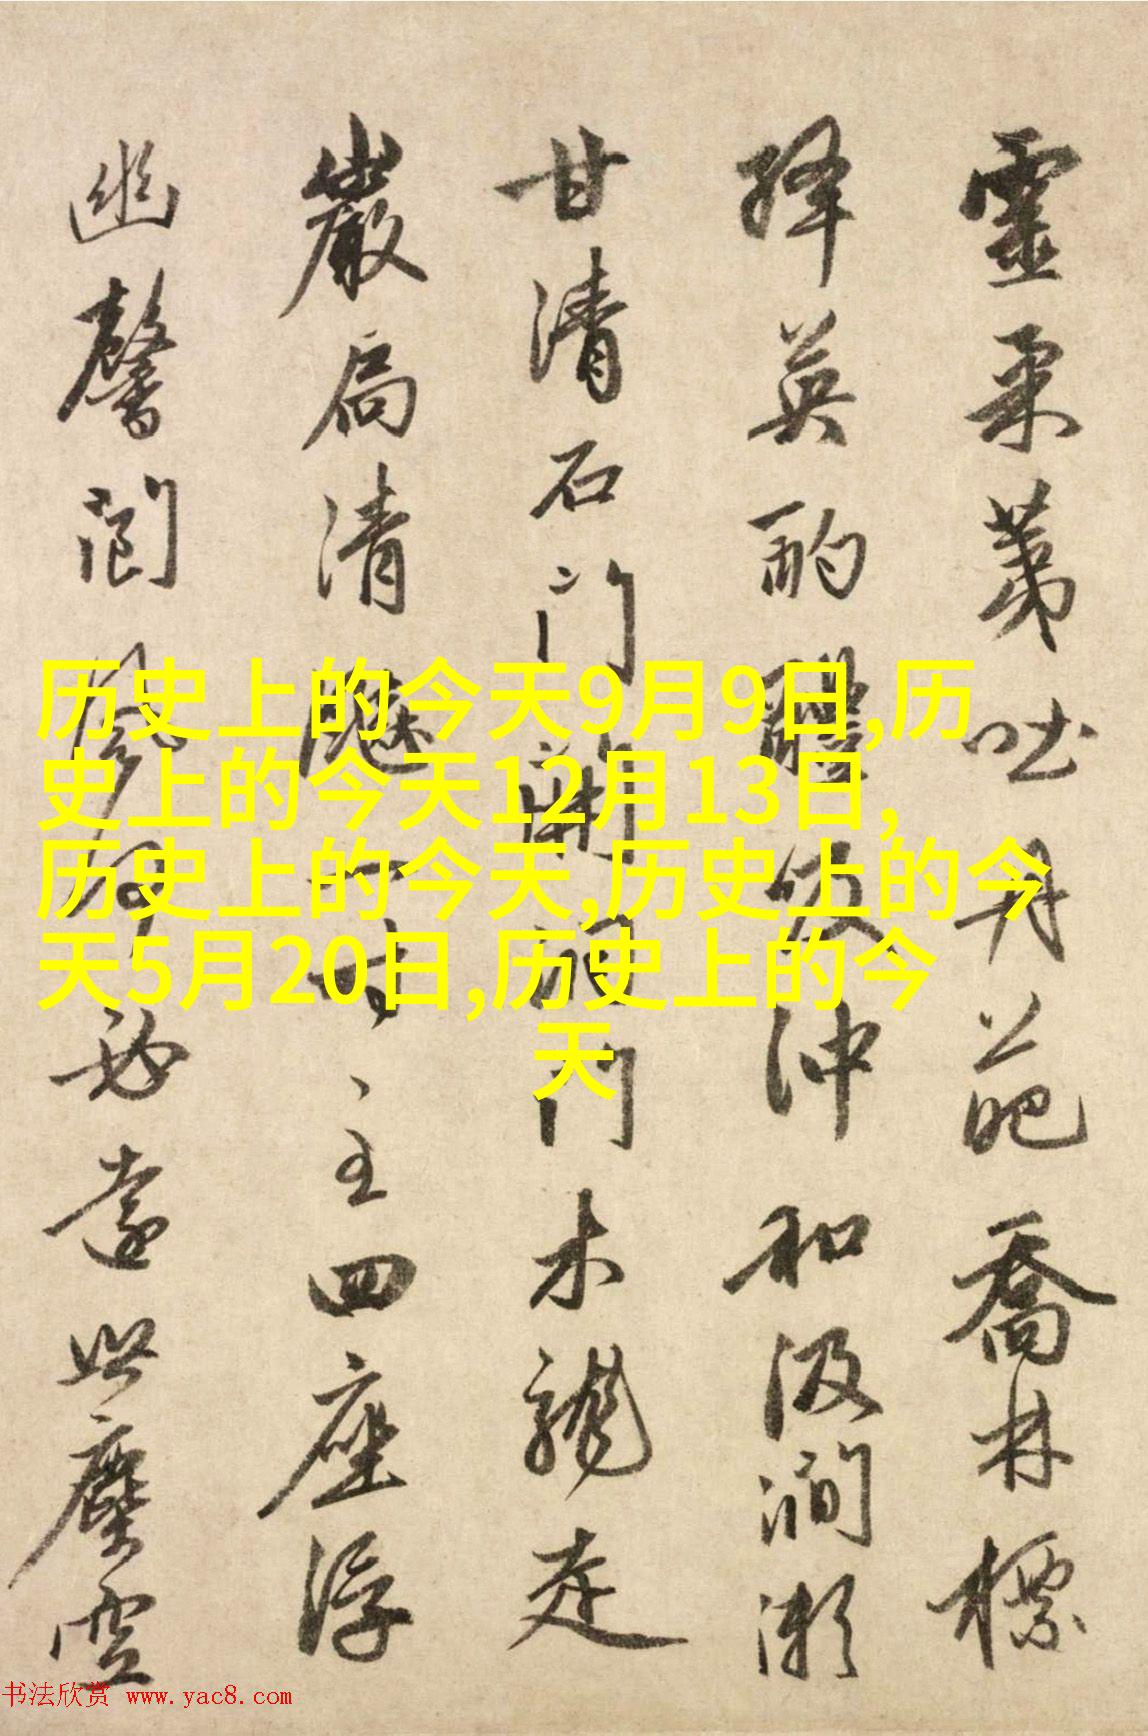 靈采荑吐丹葩喬林標
絳英酌醴吸沖和汲澗瀨
甘清石門開洞門木龍走
巖扃清飈一主四座浮
幽馨閬必遠與塵雲
历史上的今天9月9日,历
史上的今天12月13日,
历史上的今天,历史上的今
天5月20日,历史上的今
天
书法欣赏 www.yac8.com